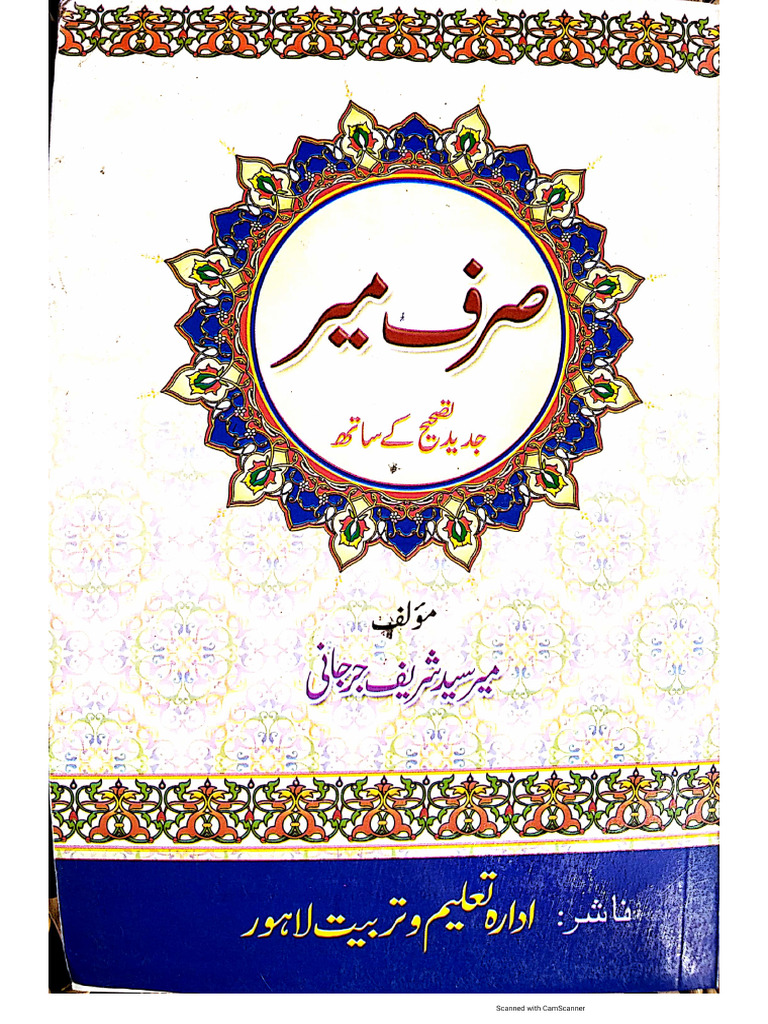 صرف میر
جدید تصحیح کے ساتھ
مؤلف
میر سید شریف جرجانی
ناشر: ادارہ تعلیم و تربیت لاہور
Scanned with CamScanner